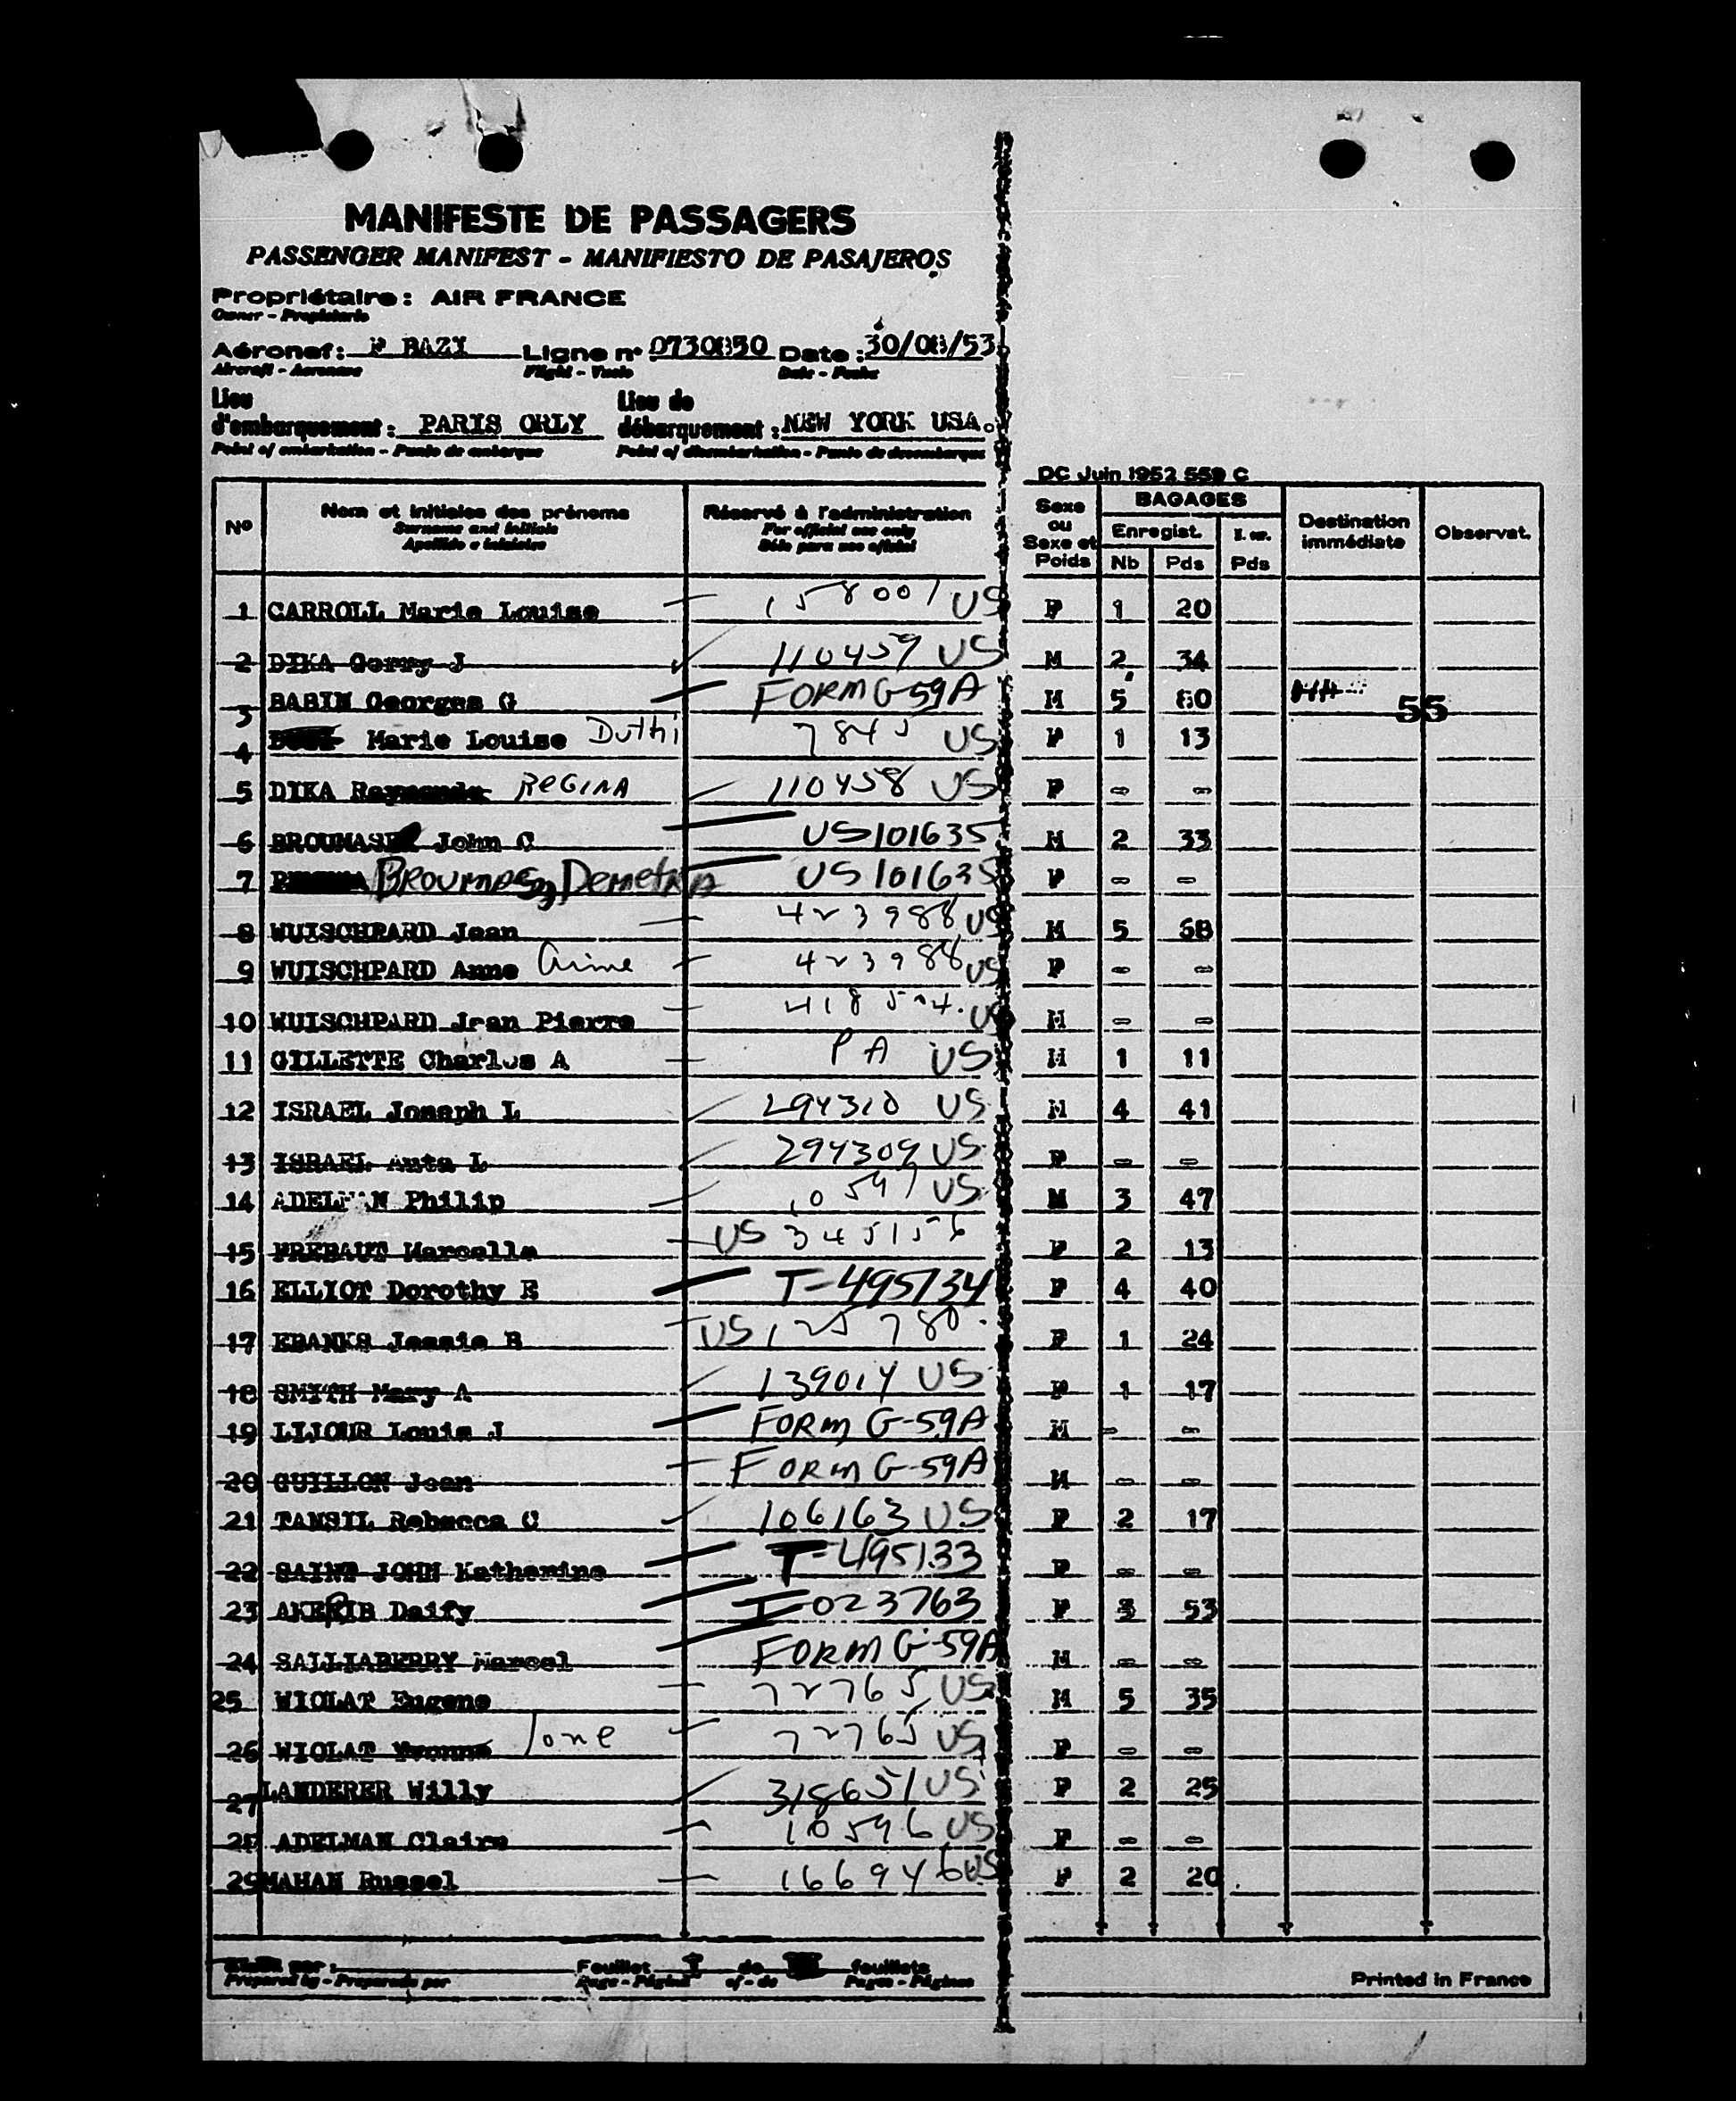 MANIFESTE DE PASSAGERS
PASSENGER MANIFEST - MANIFIESTO DE PASAJEROS
Propriétaire : AIR FRANCE
Owner - Propietario
Aéronef : F BAZI Ligne n° 0730850 Date : 30/08/53
Aircraft - Aeronave Flight - Vuelo Date - Fecha
Lieu d'embarquement : PARIS ORLY Lieu de débarquement : NEW YORK USA.
Point of embarkation - Punto de embarque Point of disembarkation - Punto de desembarque
DC Juin 1952 559 C
N° Nom et initiales des prénoms Réservé à l'administration Sexe ou Sexe et Poids BAGAGES Destination immédiate Observat.
Surname and initials For official use only Enregist.
Apellido e iniciales Sólo para uso oficial Nb Pds Pds
1 CARROLL Marie Louise 158001 US F 1 20
2 DIKA Gerry J 110459 US M 2 34
3 BABIN Georges G FORM G-59A M 5 80 55
4 Marie Louise Duthi 7845 US F 1 13
5 DIKA REGINA 110458 US F - -
6 BROUMAS John C US 101635 M 2 33
7 BROUMAS, Demetra US 101635 F - -
8 WUISCHPARD Jean 423988 US M 5 68
9 WUISCHPARD Anne Aime 423988 US F - -
10 WUISCHPARD Jean Pierre US M - -
11 GILLETTE Charles A PA US M 1 11
12 ISRAEL Joseph L 294310 US M 4 41
13 ISRAEL L 294309 US F - -
14 ADELMAN Philip 10597 US M 3 47
15 Marcelle US 345156 F 2 13
16 ELLIOT Dorothy E T-495134 F 4 40
17 EBANKS Jessie B US 125780. F 1 24
18 SMITH Mary A 139014 US F 1 17
19 Louis J FORM G-59A M - -
20 GUILLON Jean FORM G-59A M - -
21 TANSIL Rebecca C 106163 US F 2 17
22 SAINT JOHN Katherine T-495133 F - -
23 Daisy I-023763 F 3 53
24 SALLIABERRY Marcel FORM G-59A M - -
25 WIOLAT Eugene 72765 US M 5 35
26 WIOLAT Yvonne Ione 72765 US F - -
27 LANDERER Willy 318651 US F 2 25
28 ADELMAN Claire 10596 US F - -
29 MAHAN Russel 166946 US F 2 20
Etabli par : Feuillet 1 de feuillets
Prepared by - Preparado por Page - Página of - de Pages - Páginas
Printed in France